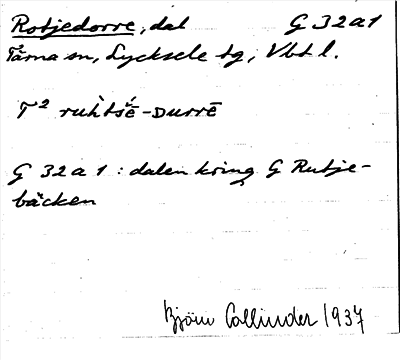 Rotjedorre, dal G 32 a 1
Tärna sn, Lycksele tg, Vbt l.
T² ruhtsē-Durrē
G 32 a 1 : dalen kring G Rutje-
bäcken
Björn Collinder 1937